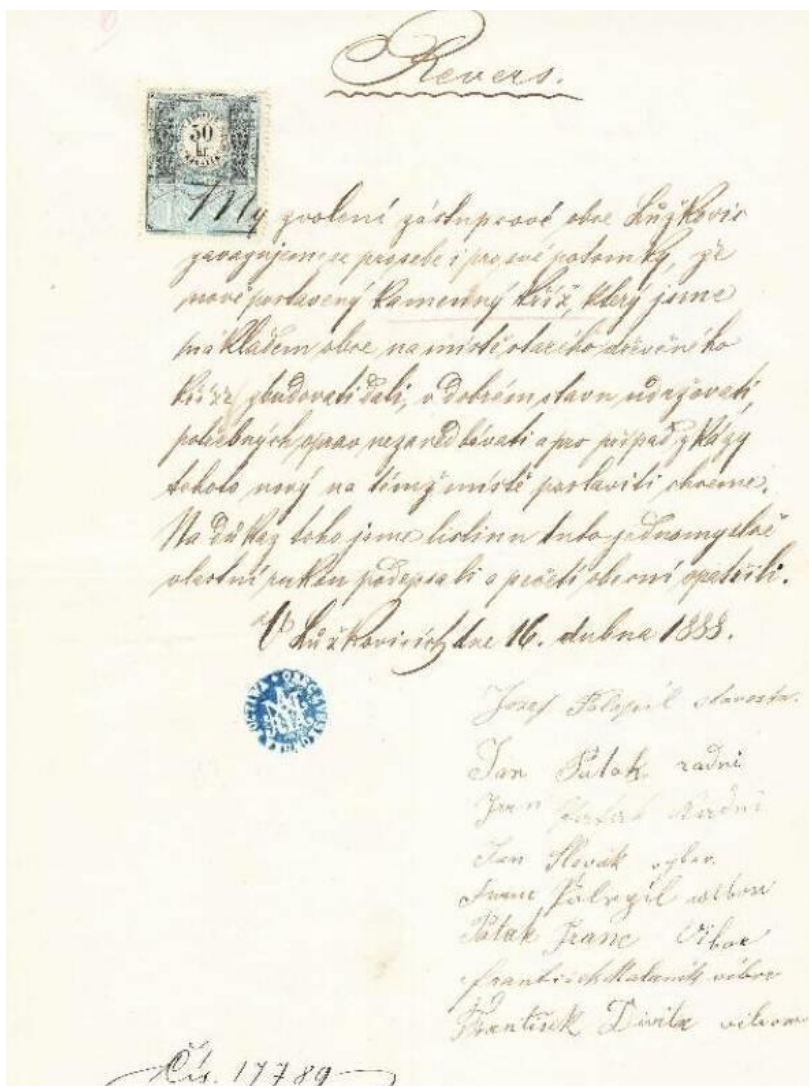 Revers.
50
kr
My zvolení zástupcové obce Lůžkovic
zavazujeme se pro sebe i pro své potomky, že
nově postavený kamenný kříž, který jsme
nákladem obce na místě starého dřevěného
kříže zbudovati dali, v dobrém stavu udržovati,
potřebných oprav nezanedbávati a pro případ zkázy
tohoto nový na témž místě postaviti chceme.
Na důkaz toho jsme listinu tuto jednomyslně
vlastní rukou podepsali a pečetí obecní opatřili.
V Lůžkovicích dne 16. dubna 1888.
Josef starosta.
Jan Paták radní
Jan radní
Jan Slovák výbor.
Franc
Paták Franc Vibor
František vibor
František Divila
Čís. 17789